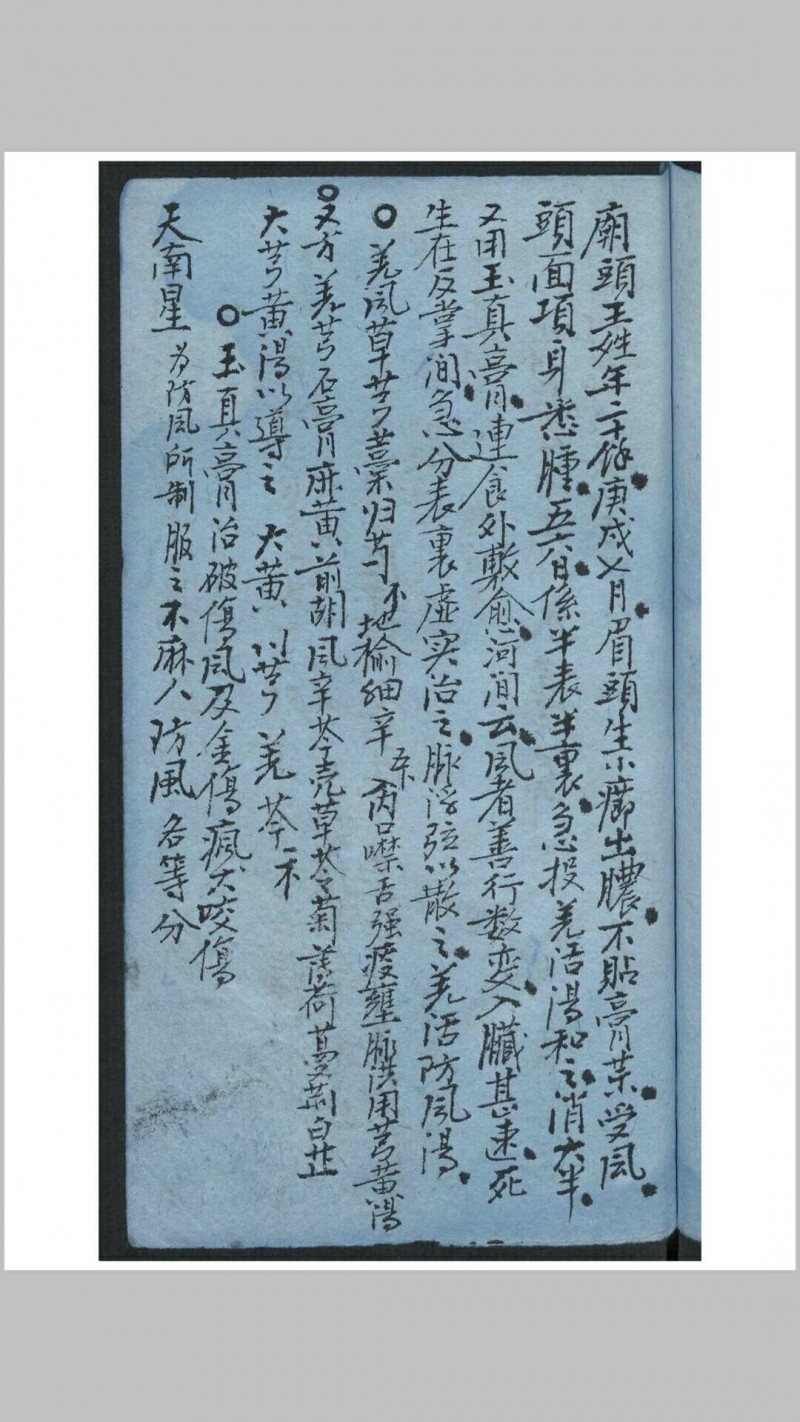 廟頭王姓年二十餘庚戌七月眉頭生小癤出膿不貼膏藥受風
頭面項身悉腫五六日係半表半裏急投羌活湯和之消大半
又用玉真膏連食外敷愈河间云風者善行数变入臟甚速死
生在反掌间急分表裏虛实治之脉浮弦以散之羌活防风湯
○羌风草芎藁归芍地榆細辛 下 内口噤舌强痰壅脉洪用芎黄湯
○又方羌芎石膏麻黄前胡风辛芩壳草苓菊薄荷蔓荆白芷
大芎黄湯以導之 大黄 川芎 羌 芩 下
○玉真膏治破傷风及金傷瘋犬咬傷
天南星 为防风所制服之不麻人 防風 各等分